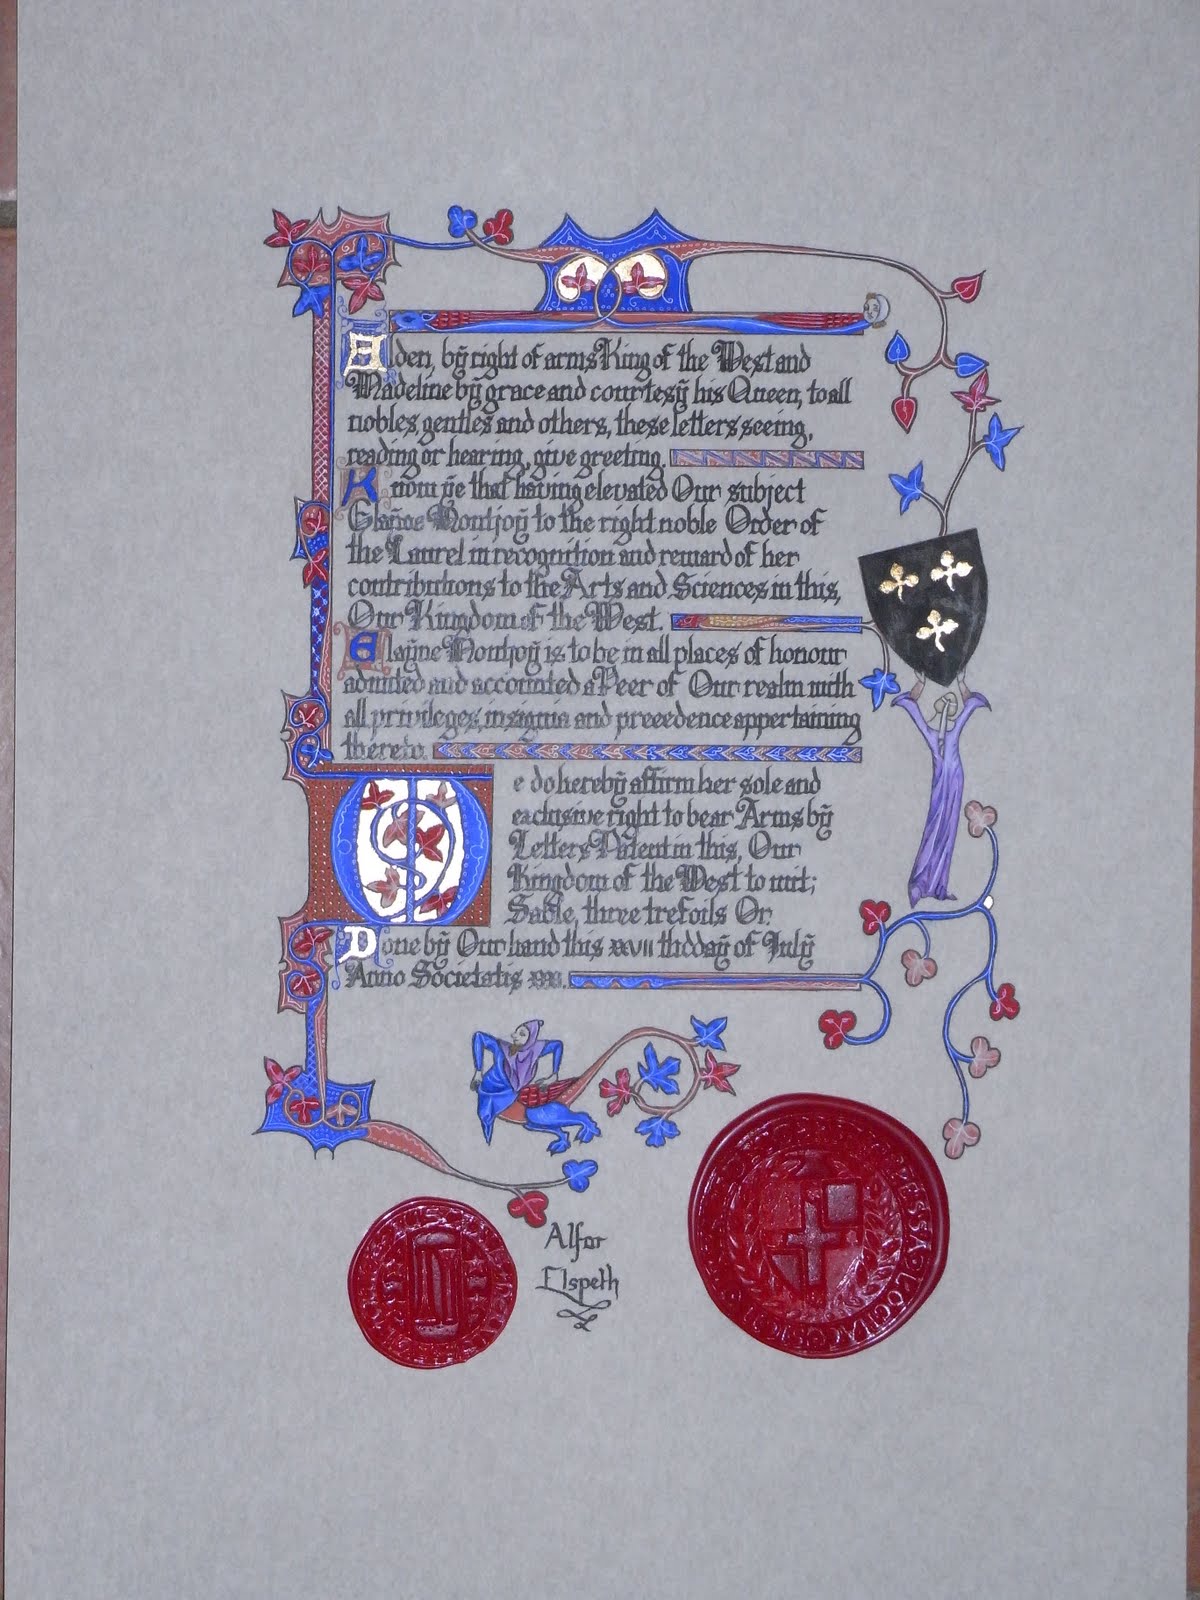 Alden, by right of arms King of the West and
Madeline by grace and courtesy his Queen, to all
nobles, gentles and others, these letters seeing,
reading or hearing, give greeting.
Know ye that having elevated Our subject
Elayne Montjoy to the right noble Order of
the Laurel in recognition and reward of her
contributions to the Arts and Sciences in this,
Our Kingdom of the West.
Elayne Montjoy is to be in all places of honour
admited and accounted a Peer of Our realm with
all privileges, insignia and precedence appertaining
thereto.
We do hereby affirm her sole and
exclusive right to bear Arms by
Letters Patent in this, Our
Kingdom of the West to wit;
Sable, three trefoils Or.
Done by Our hand this xxvii th day of July
Anno Societatis
Alfar
Elspeth